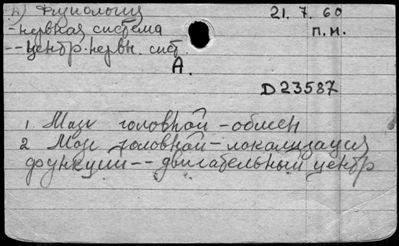 n) Физиология
21. 7. 60
-нервная система
п.н.
--центр. нервн. сист.
A.
D23587
1 Мозг головной-обмен
2 Мозг головной-локализация
функции--двигательный центр